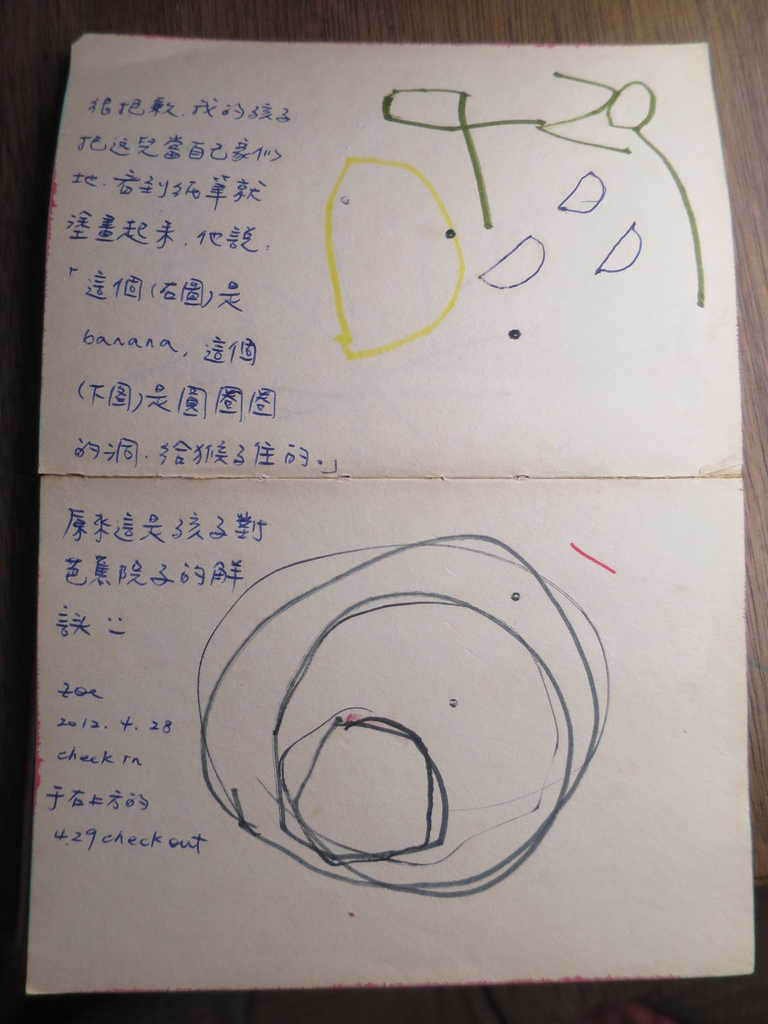 很抱歉.我的孩子
把这兒當自己家似
地.看到紙筆就
塗畫起来.他說:
「這個(右圖)是
banana, 這個
(下图)是圓圈圈
的洞.给猴子住的。」
原來這是孩子對
芭蕉院子的解
讀
Zoe
2012.4.28
check in
于右上方的
4.29 check out